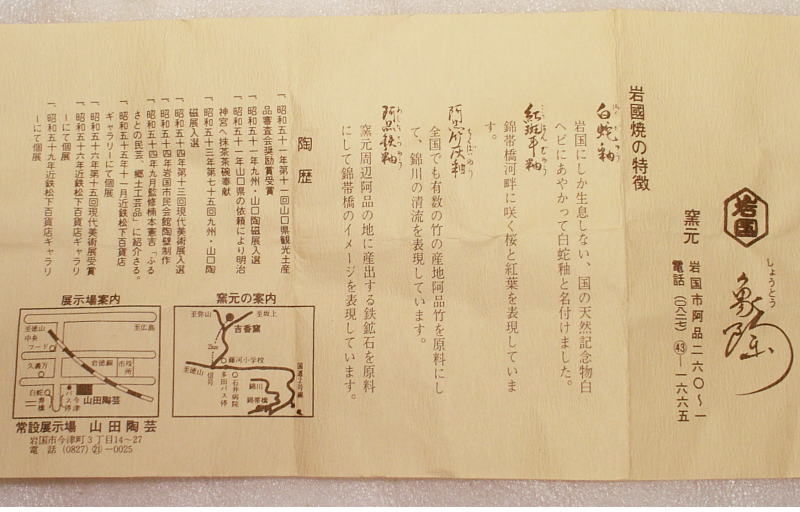 岩国
しょうとう
窯元
岩国市阿品二六〇～一
電話(〇八二七)㊸―一六六五
岩國焼の特徴
白蛇釉
岩国にしか生息しない、国の天然記念物白
ヘビにあやかって白蛇釉と名付けました。
錦帯橋河畔に咲く桜と紅葉を表現していま
す。
全国でも有数の竹の産地阿品竹を原料にし
て、錦川の清流を表現しています。
阿品鉄釉
窯元周辺阿品の地に産出する鉄鉱石を原料
にして錦帯橋のイメージを表現しています。
陶歴
一、昭和五十一年第十一回山口県観光土産
品審査会奨励賞受賞
一、昭和五十一年九州・山口陶磁展入選
一、昭和五十一年山口県の依頼により明治
神宮へ抹茶茶碗奉献
一、昭和五十三年第七十五回九州・山口陶
磁展入選
一、昭和五十四年第十三回現代美術展入選
一、昭和五十四年岩国市民会館陶壁制作
一、昭和五十四年九月監修楠本憲吉「ふる
さとの民芸、郷土工芸品」に紹介さる。
一、昭和五十五年十一月近鉄松下百貨店
ギャラリーにて個展
一、昭和五十六年第十五回現代美術展受賞
一、昭和五十六年近鉄松下百貨店ギャラリ
ーにて個展
一、昭和五十九年近鉄松下百貨店ギャラリ
ーにて個展
窯元の案内
至弥山
至坂上
吉香窯
2km
藤河小学校
至徳山
信号
多田バス停
石井病院
錦川
錦帯橋
国道2号線
展示場案内
至徳山
至広島
中央
フード
岩徳線
市役所
久義万
白蛇
寿橋
バス停
今津
山田陶芸
常設展示場 山田陶芸
岩国市今津町3丁目14～27
電話 (0827)㉑―0025